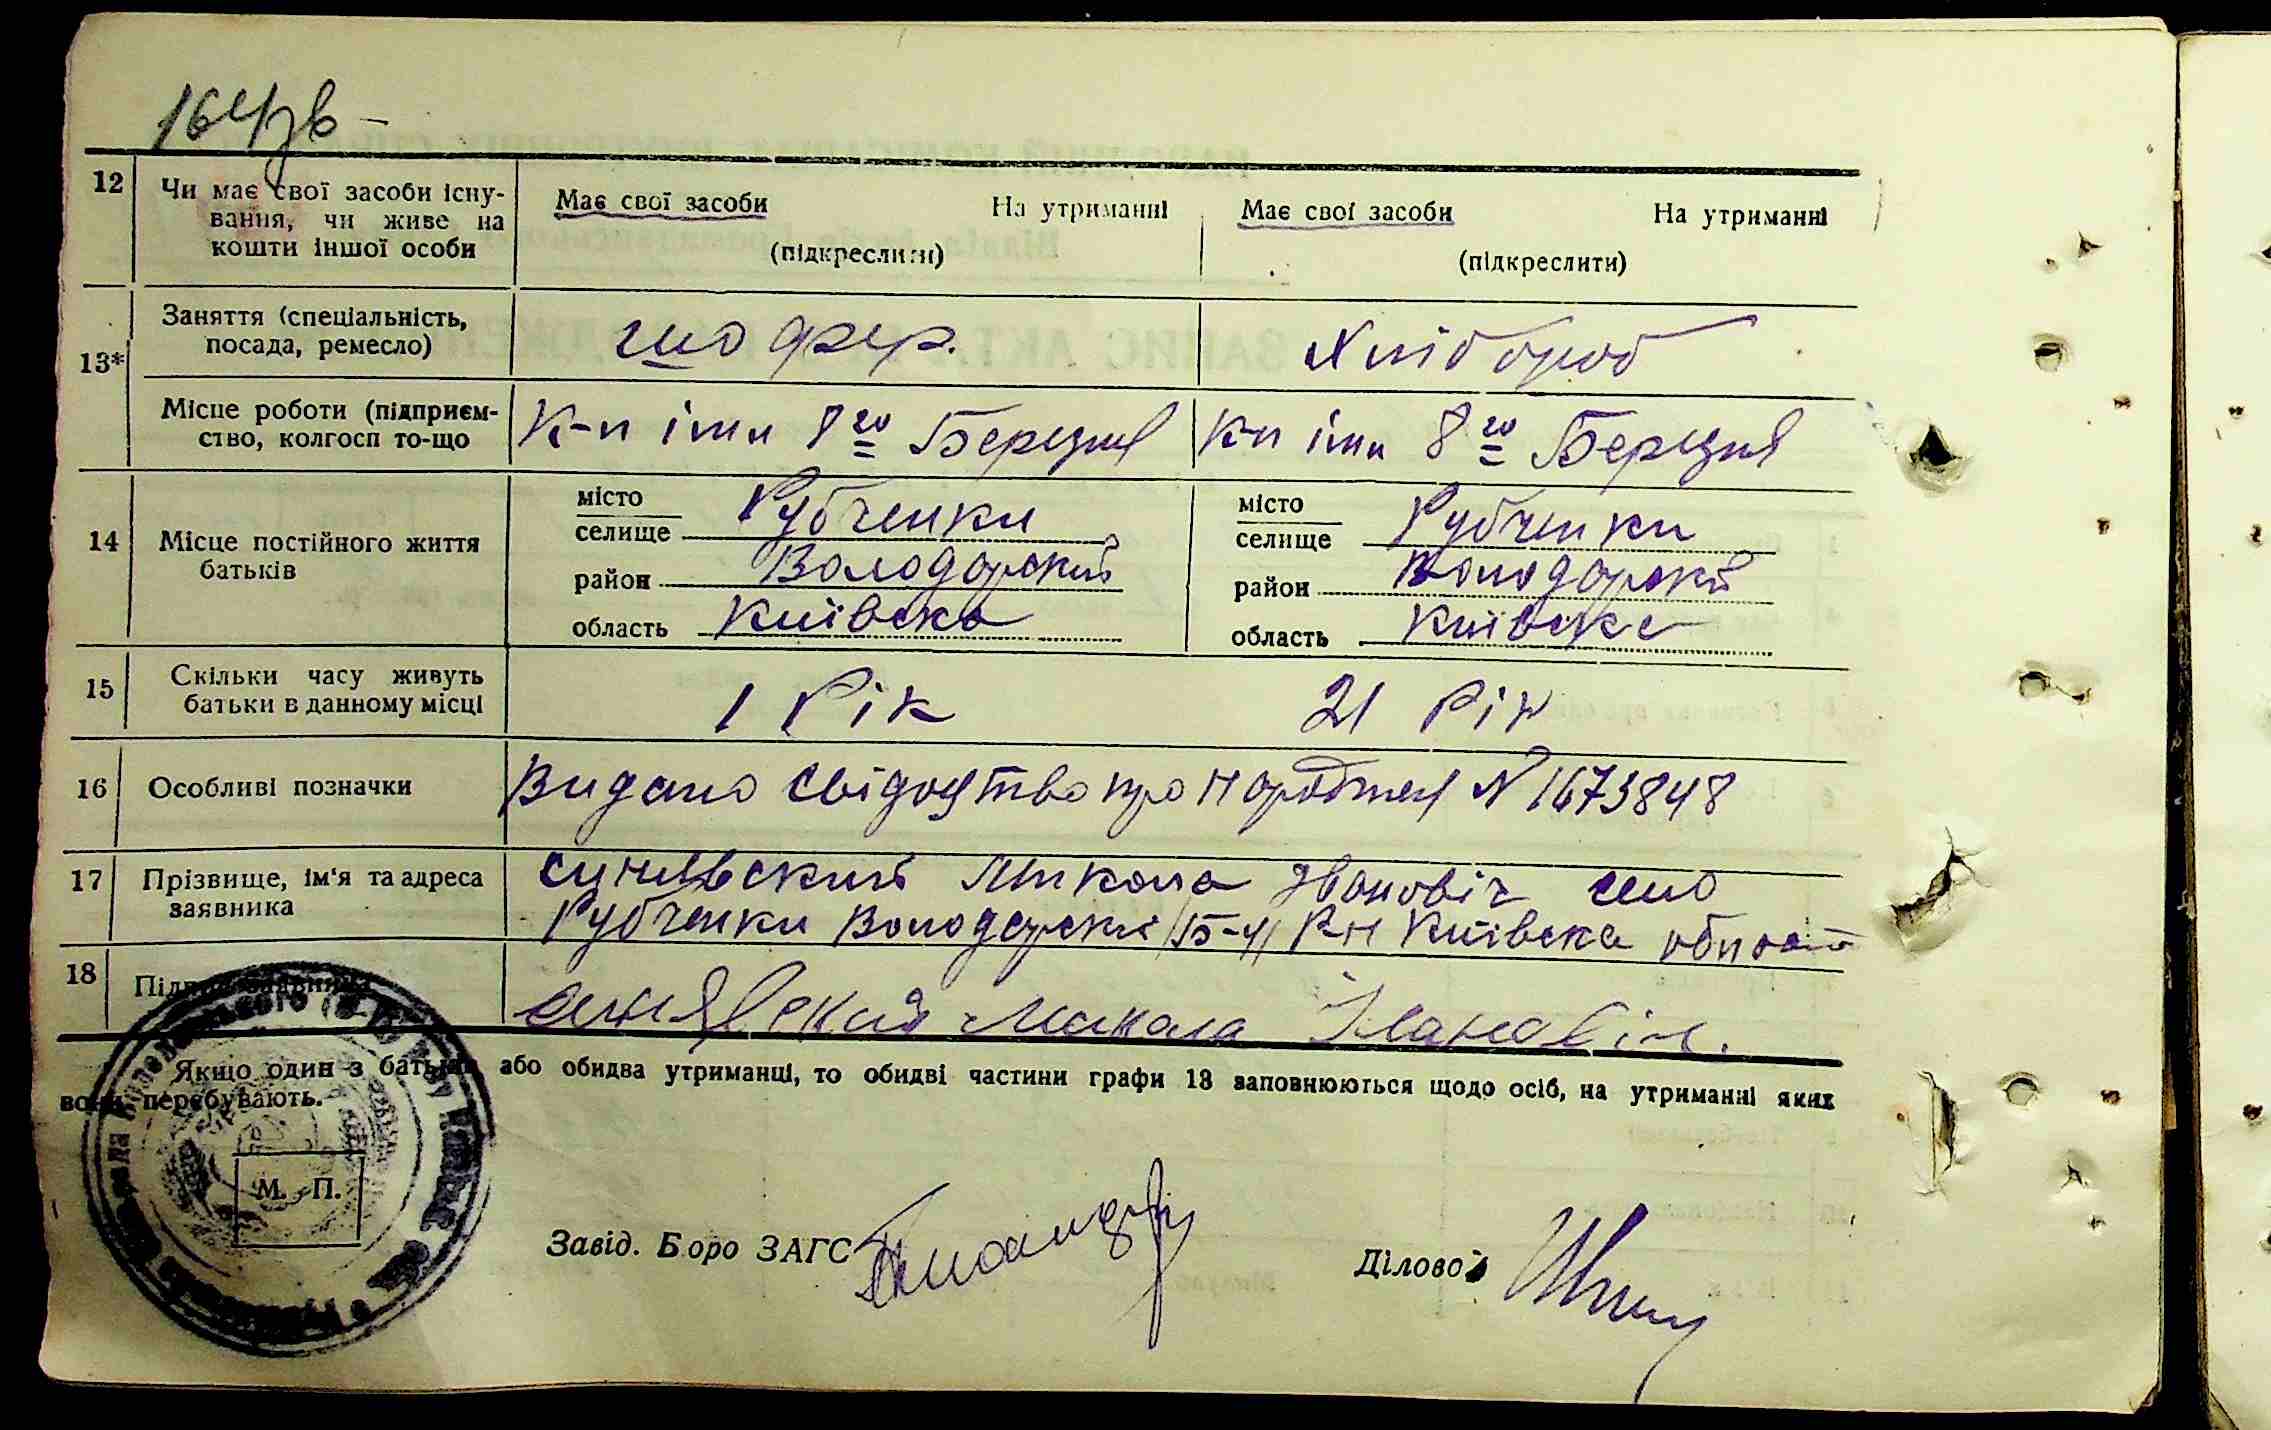 12 Чи має свої засоби існу-
вання, чи живе на
кошти іншої особи
Має свої засоби На утриманні
(підкреслити)
Має свої засоби На утриманні
(підкреслити)
13* Заняття (спеціальність,
посада, ремесло)
шофер.
Хлібороб
Місце роботи (підприєм-
ство, колгосп то-що
К-п імя 8го Березня
К-п імя 8го Березня
14 Місце постійного життя
батьків
місто
селище Рубченки
район Володарский
область Київска
місто
селище Рубченки
район Володарский
область Київска
15 Скільки часу живуть
батьки в данному місці
1 Рік
21 Рік
16 Особливі позначки
Видано свідоцтво про народження N 1673848
17 Прізвище, ім'я та адреса
заявника
Синявский Микола Іванович село
Рубченки Володарский /Б-Ц/ Р-н Київска област
18 Підпис заявника
Синявский Микола Іванович.
Якщо один з батьків або обидва утриманці, то обидві частини графи 13 заповнюються щодо осіб, на утриманні яких
вони перебувають.
М. П.
Завід. Боро ЗАГС
Діловод